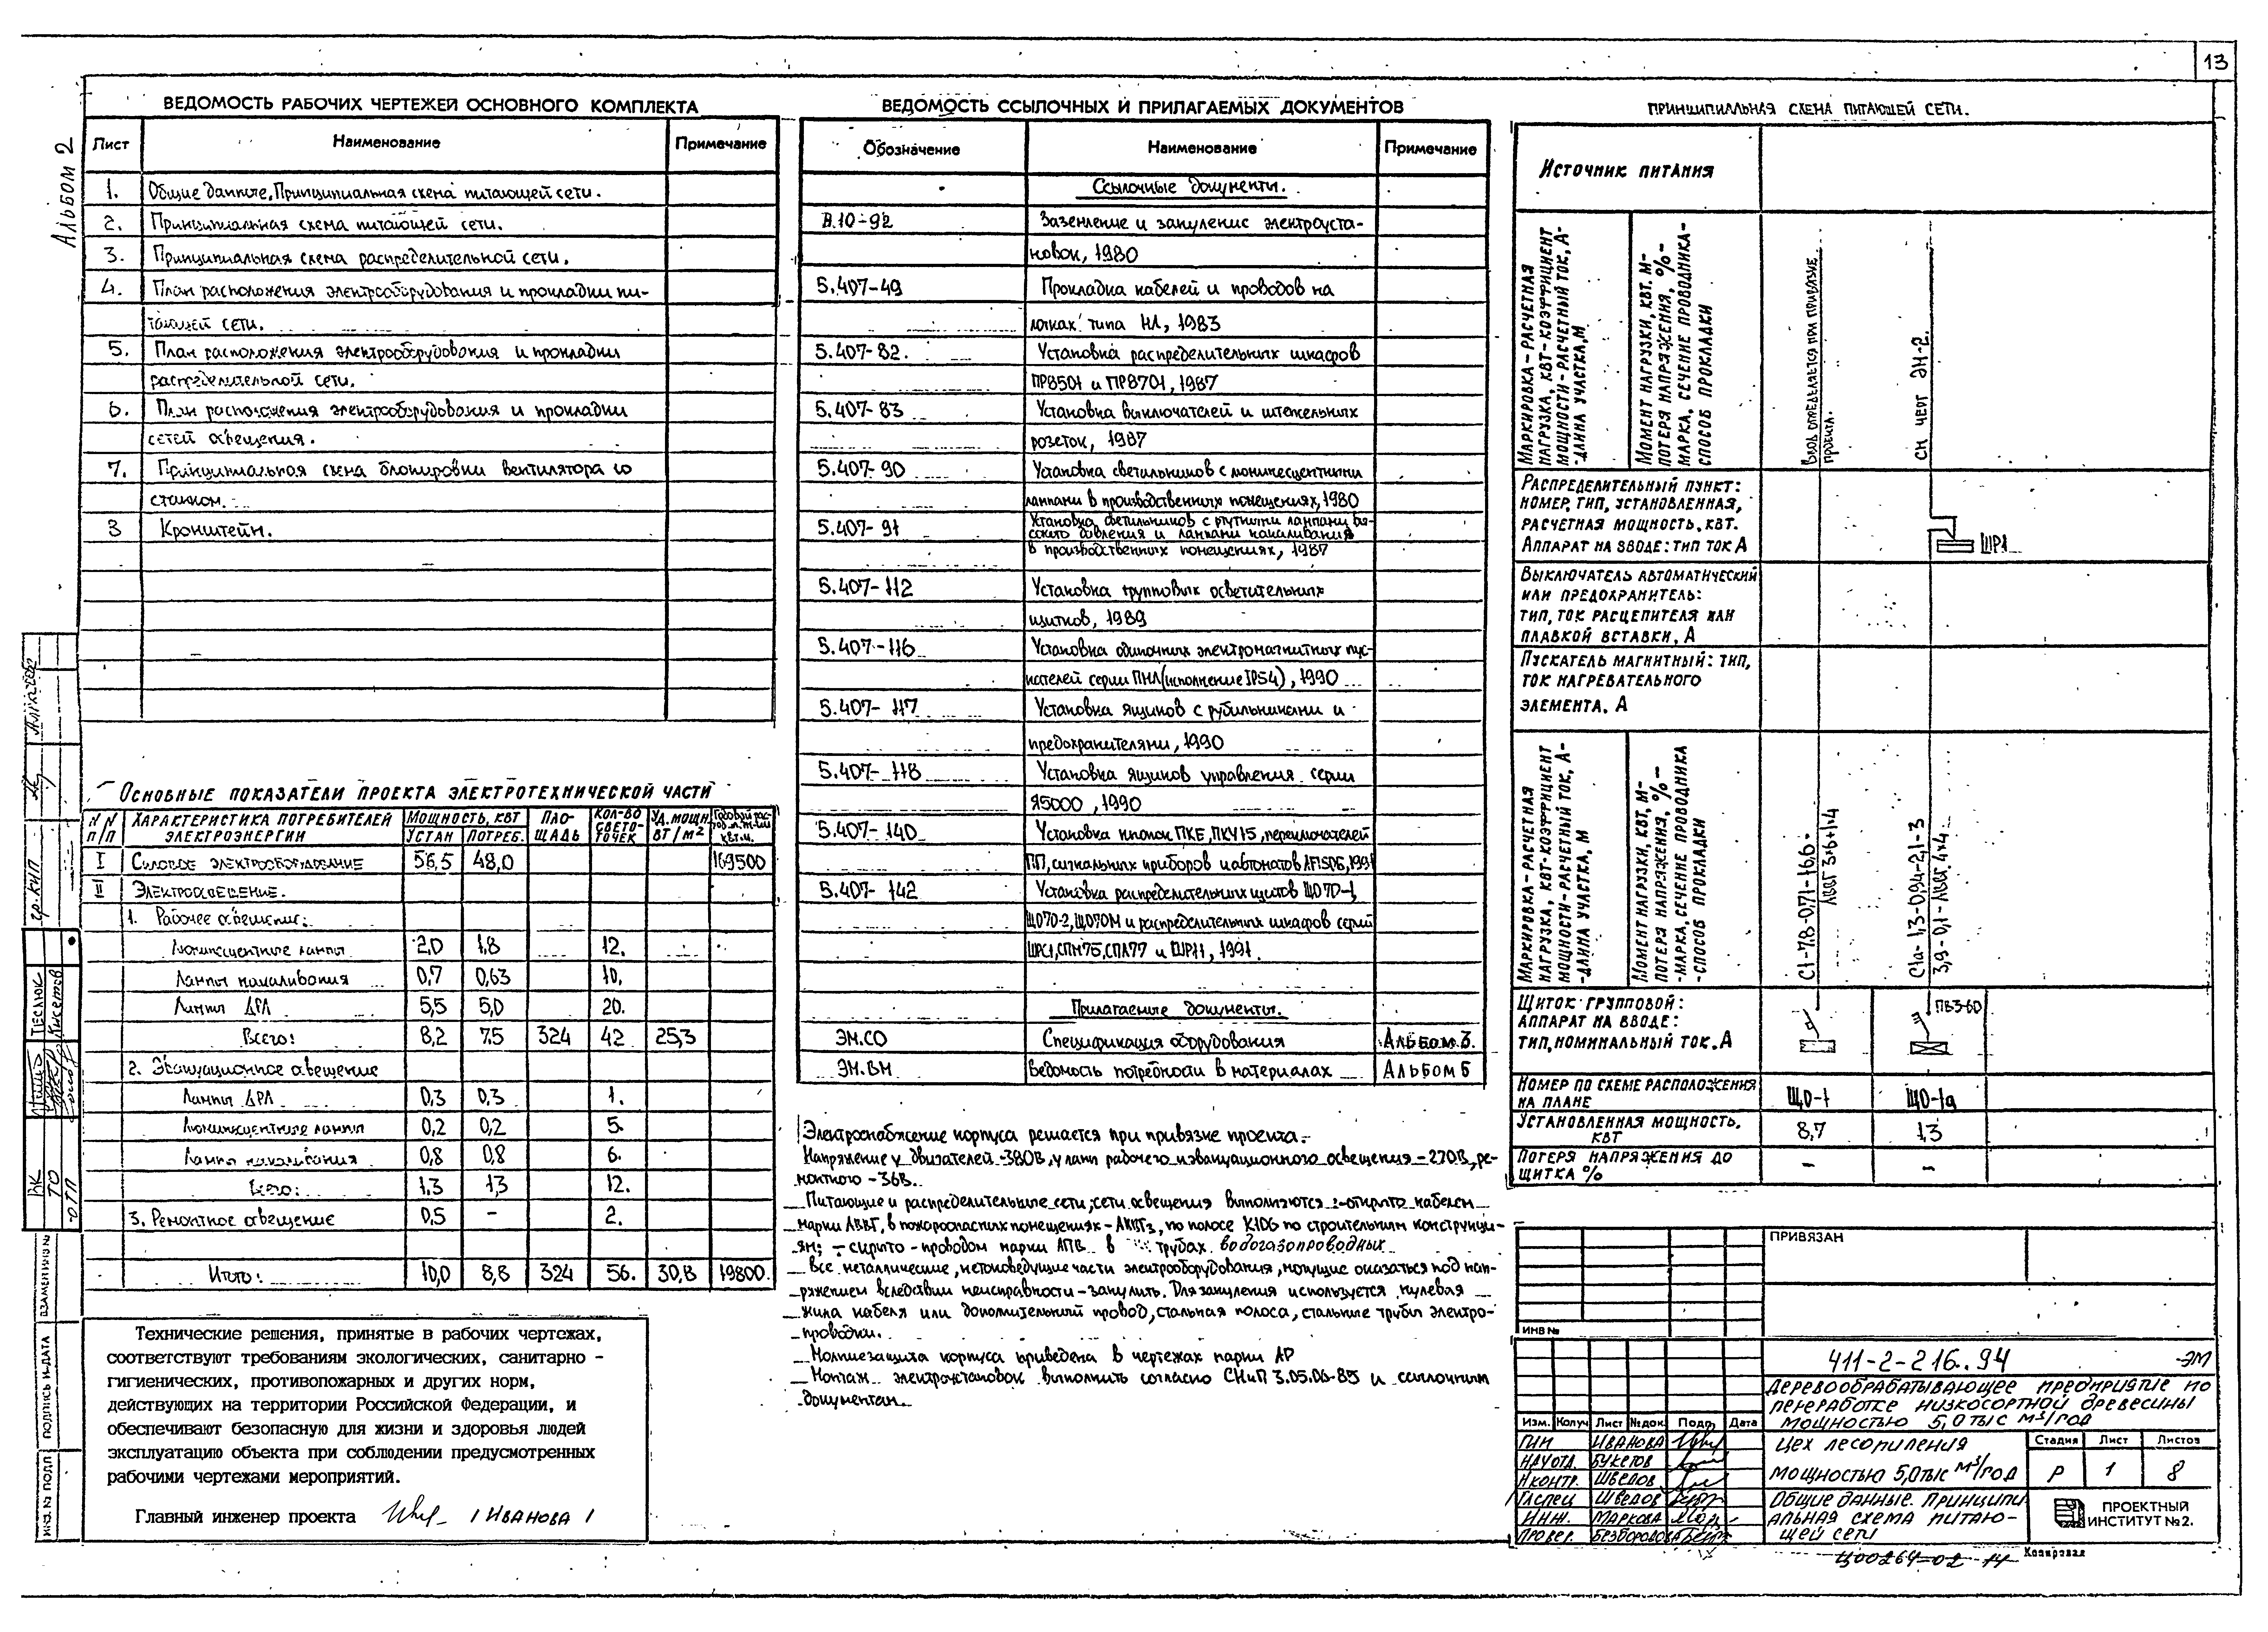 13
Альбом 2
ВЕДОМОСТЬ РАБОЧИХ ЧЕРТЕЖЕЙ ОСНОВНОГО КОМПЛЕКТА
Лист Наименование Примечание
1. Общие данные. Принципиальная схема питающей сети.
2. Принципиальная схема питающей сети.
3. Принципиальная схема распределительной сети.
4. План расположения электрооборудования и прокладки пи-
тающей сети.
5. План расположения электрооборудования и прокладки
распределительной сети.
6. План расположения электрооборудования и прокладки
сетей освещения.
7. Принципиальная схема блокировки вентилятора со
станком.
Кронштейн.
Основные показатели проекта электротехнической части
NN п/п Характеристика потребителей электроэнергии Мощность, кВт Пло-щадь Кол-во свето-точек Уд. мощн. Вт/м²
устан потреб.
I Силовое электрооборудование 56,5 48,0 169500
II Электроосвещение.
1. Рабочее освещение:
Люминесцентные лампы 2,0 1,8 12.
Лампы накаливания 0,7 0,63 10.
Лампы ДРЛ 5,5 5,0 20.
Всего: 8,2 7,5 324 42 25,3
2. Эвакуационное освещение
Лампы ДРЛ 0,3 0,3 1.
Люминесцентные лампы 0,2 0,2 5.
Лампы накаливания 0,8 0,8 6.
Всего: 1,3 1,3 12.
3. Ремонтное освещение 0,5 – 2.
Итого: 10,0 8,8 324 56. 30,8 19800.
Технические решения, принятые в рабочих чертежах,
соответствуют требованиям экологических, санитарно -
гигиенических, противопожарных и других норм,
действующих на территории Российской Федерации, и
обеспечивают безопасную для жизни и здоровья людей
эксплуатацию объекта при соблюдении предусмотренных
рабочими чертежами мероприятий.
Главный инженер проекта / Иванова /
ВЕДОМОСТЬ ССЫЛОЧНЫХ И ПРИЛАГАЕМЫХ ДОКУМЕНТОВ
Обозначение Наименование Примечание
Ссылочные документы.
А.10-92 Заземление и зануление электроуста-
новок, 1980
5.407-49 Прокладка кабелей и проводов на
лотках типа НЛ, 1983
5.407-82. Установка распределительных шкафов
ПР8501 и ПР8701, 1987
5.407-83 Установка выключателей и штепсельных
розеток, 1987
5.407-90 Установка светильников с люминесцентными
лампами в производственных помещениях, 1980
5.407-91 Установка светильников с ртутными лампами вы-
сокого давления и лампами накаливания
в производственных помещениях, 1987
5.407-112 Установка групповых осветительных
щитков, 1989
5.407-116 Установка одиночных электромагнитных пус-
кателей серии ПМЛ (исполнение IP54), 1990
5.407-117 Установка ящиков с рубильниками и
предохранителями, 1990
5.407-118 Установка ящиков управления серии
Я5000, 1990
5.407-140 Установка кнопок ПКЕ, ПКУ15, переключателей
ПП, сигнальных приборов и автоматов АП50Б, 1991
5.407-142 Установка распределительных щитов ЩО70-1,
ЩО70-2, ЩО70М и распределительных шкафов серий
ШРС1, СПМ75, СПА77 и ШР11, 1991.
Прилагаемые документы.
ЭМ.СО Спецификация оборудования Альбом 3.
ЭМ.ВМ Ведомость потребности в материалах Альбом 6
Электроснабжение корпуса решается при привязке проекта.
Напряжение у двигателей -380В, у ламп рабочего и эвакуационного освещения - 220В, ре-
монтного - 36В.
Питающие и распределительные сети, сети освещения выполняются :-открыто кабелем
марки АВВГ, в пожароопасных помещениях - АВВГз, по полосе К106 по строительным конструкци-
ям; - скрыто - проводом марки АПВ в трубах водогазопроводных
Все металлические, нетоковедущие части электрооборудования, могущие оказаться под нап-
ряжением вследствии неисправности - занулить. Для зануления используется нулевая
жила кабеля или дополнительный провод, стальная полоса, стальные трубы электро-
проводки.
Молниезащита корпуса приведена в чертежах марки АР
Монтаж электроустановок выполнить согласно СНиП 3.05.06-85 и ссылочным
документам.
ПРИНЦИПИАЛЬНАЯ СХЕМА ПИТАЮЩЕЙ СЕТИ.
Источник питания
Маркировка - расчетная нагрузка, кВт - коэффициент мощности - расчетный ток, А - длина участка, м
Момент нагрузки, кВт. м - потеря напряжения, % - марка, сечение проводника - способ прокладки
Ввод определяется при привязке проекта.
см черт ЭМ-2.
Распределительный пункт:
номер, тип, установленная,
расчетная мощность, кВт.
Аппарат на вводе: тип ток А
ШР1
Выключатель автоматический
или предохранитель:
тип, ток расцепителя или
плавкой вставки, А
Пускатель магнитный: тип,
ток нагревательного
элемента. А
Маркировка - расчетная нагрузка, кВт - коэффициент мощности - расчетный ток, А - длина участка, м
Момент нагрузки, кВт, м - потеря напряжения, % - марка, сечение проводника - способ прокладки
С1-7.8-0.71-16,6-
АВВГ 3×6+1×4
С1а-1,3-0,94-2,1-3
3,9-0,1-АВВГ 4×4
Щиток групповой:
аппарат на вводе:
тип, номинальный ток. А
ПВ3-60
Номер по схеме расположения
на плане ЩО-1 ЩО-1а
Установленная мощность.
кВт 8,7 1,3
Потеря напряжения до
щитка % – –
ПРИВЯЗАН
ИНВ №
411-2-216.94 -ЭМ
Деревообрабатывающее предприятие по
переработке низкосортной древесины
мощностью 5,0 тыс м³/год
Изм. Колуч Лист № док. Подп. Дата
ГИП Иванова
Нач отд. Букетов
Н контр. Шведов
Гл спец Шведов
Инж. Маркова
Провер. Безбородова
Цех лесопиления
мощностью 5,0 тыс м³/год
Стадия Лист Листов
Р 1 8
Общие данные. Принципи
альная схема питаю-
щей сети
ПРОЕКТНЫЙ
ИНСТИТУТ №2.
Ц00264-02 14
Копировал
гр. КИП
Теслюк
Кисетов
ВК
ТО
ОТП
ВЗАМЕН ИНВ №
ПОДПИСЬ И ДАТА
ИНВ. № ПОДЛ